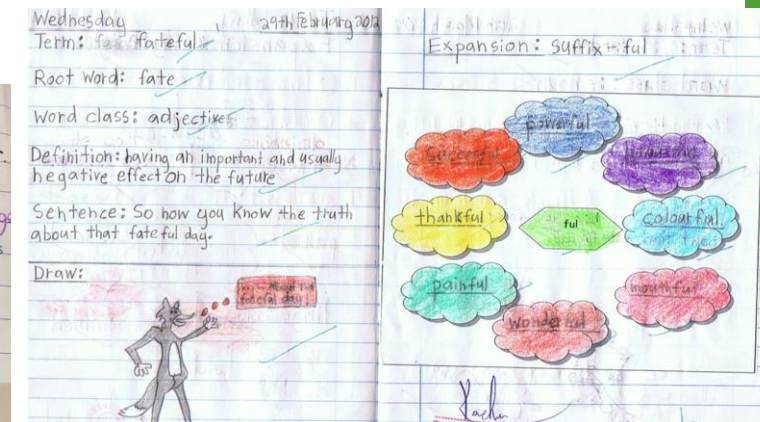 Wednesday
29th February 2012
Term: fateful
Root word: fate
Word class: adjective
Definition: having an important and usually
negative effect on the future
Sentence: So now you know the truth
about that fateful day.
Draw:
about the
fateful day!
Expansion: suffix - ful
powerful
successful
thankful
ful
colourful
painful
mouthful
wonderful